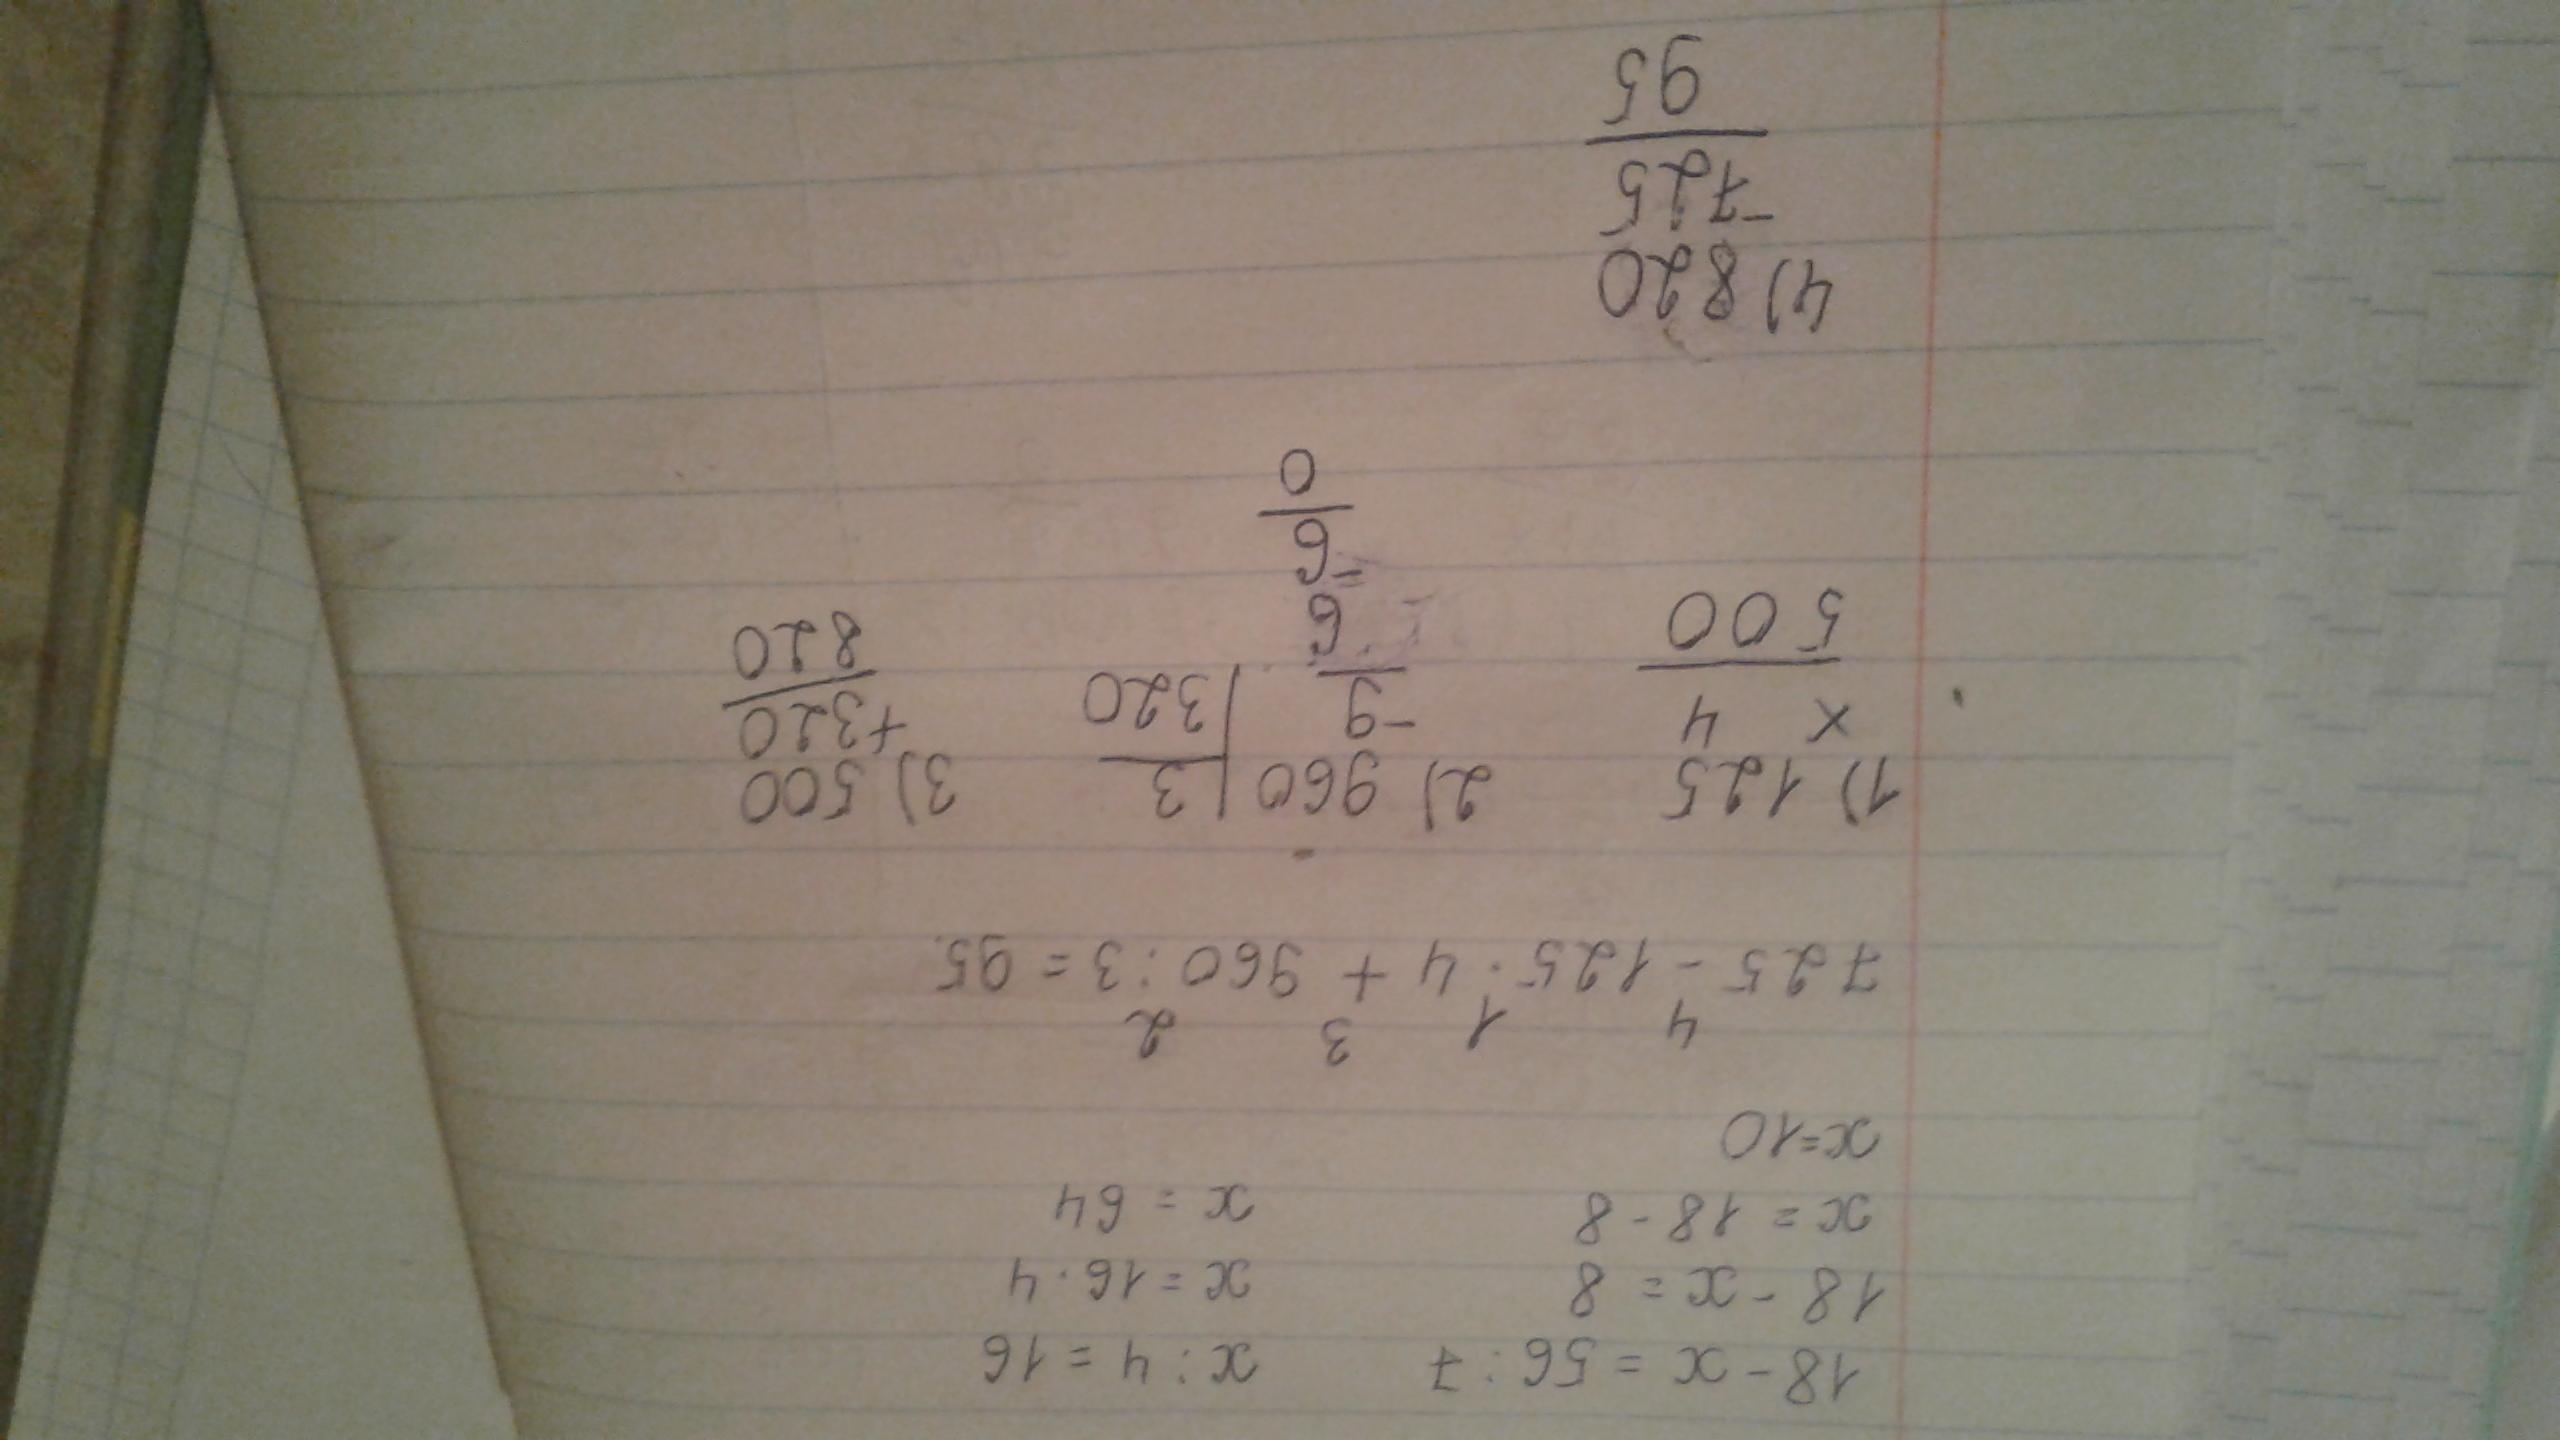 18 - x = 56 : 7    x : 4 = 16
18 - x = 8    x = 16 · 4
x = 18 - 8    x = 64
x=10
4 1 3 2
725 - 125 · 4 + 960 : 3 = 95
1) 125    2) 960 | 3    3) 500
x 4    -9 | 320    +320
500    6    820
-6
0
4) 820
-725
95